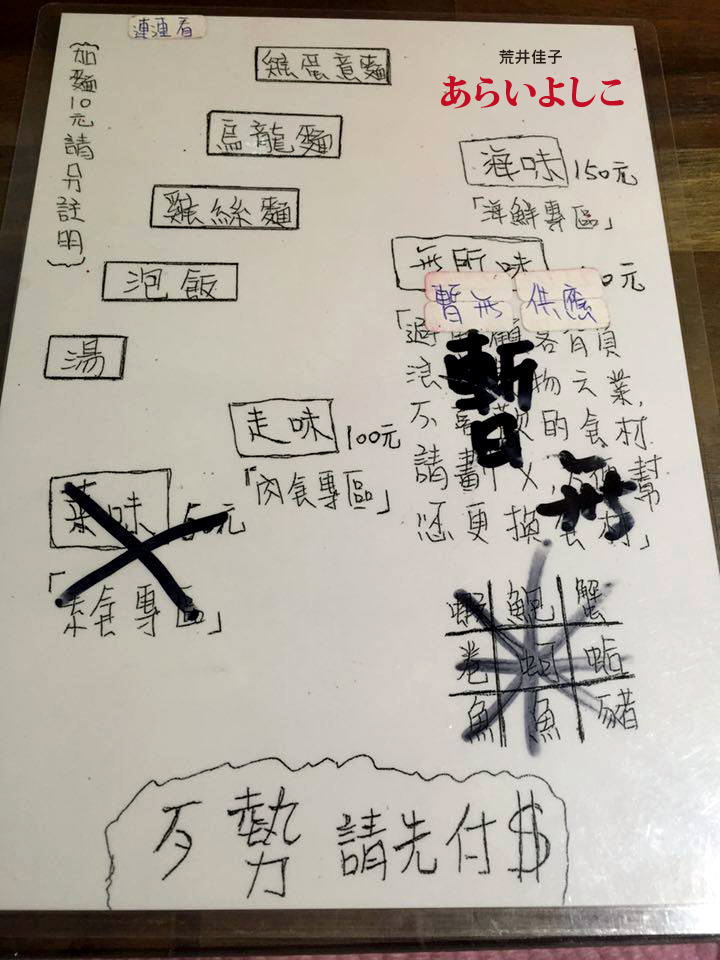 連連看
荒井佳子
あらいよしこ
{加麵10元請另註明}
雞蛋意麵
烏龍麵
雞絲麵
泡飯
湯
海味 150元
「海鮮專區」
無所味
元
暫無 供應
暫無
各有負
物云業,
不 的食材
請畫
幫
您更換食材」
走味 100元
「肉食專區」
菜味 50元
「素食專區」
蝦 鮑 蟹
卷 蚵 蛤
魚 魚 豬
歹勢 請先付$